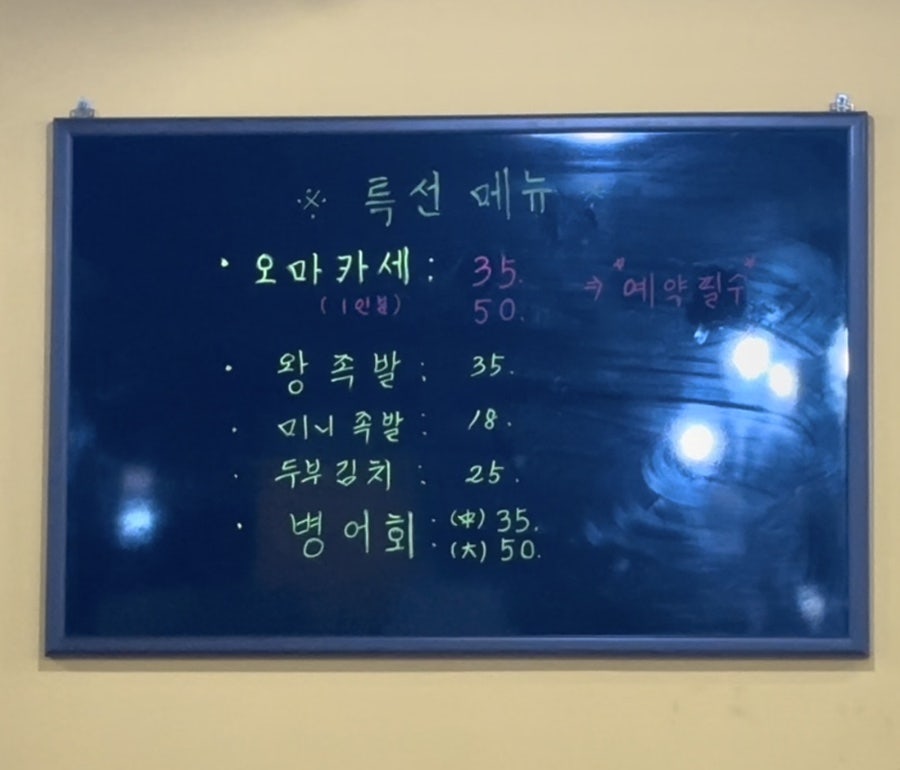 ※ 특선 메뉴 ※
• 오마카세 : 35. ⇒ "예약필수"
(1인분) 50.
• 왕족발 : 35.
• 미니족발 : 18.
• 두부김치 : 25.
• 병어회 : (中) 35.
(大) 50.